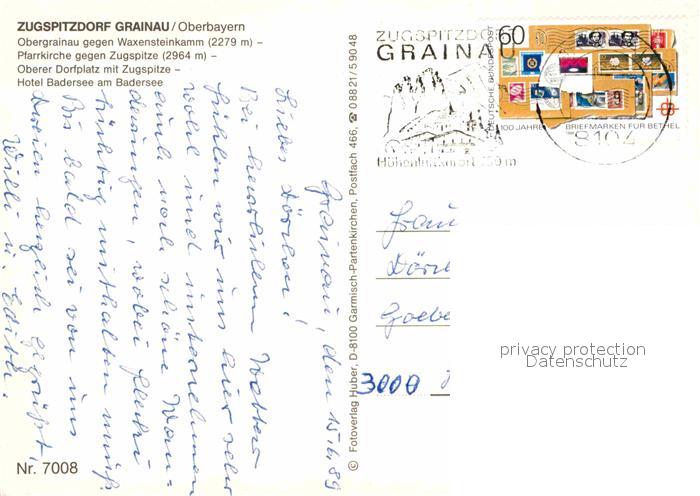 ZUGSPITZDORF GRAINAU/Oberbayern
Obergrainau gegen Waxensteinkamm (2279 m) –
Pfarrkirche gegen Zugspitze (2964 m) –
Oberer Dorfplatz mit Zugspitze –
Hotel Badersee am Badersee
Grainau, den 15.6.89
Liebes Dörchen!
Bei herrlichem Wetter
fühlen wir uns hier sehr
wohl und unternehmen
viele schöne Wan-
derungen, wobei
tüchtig mithalten muß.
Bis bald sei von uns
herzlich gegrüßt,
Willi u. Edith.
Nr. 7008
© Fotoverlag Huber, D-8100 Garmisch-Partenkirchen, Postfach 466, ☎ 08821/59048
ZUGSPITZDO
GRAINAU
Höhenluftkurort 750 m
60
DEUTSCHE BUNDESPOST
100 JAHRE BRIEFMARKEN FÜR BETHEL
8104
Frau
Goebe
3000
privacy protection
Datenschutz